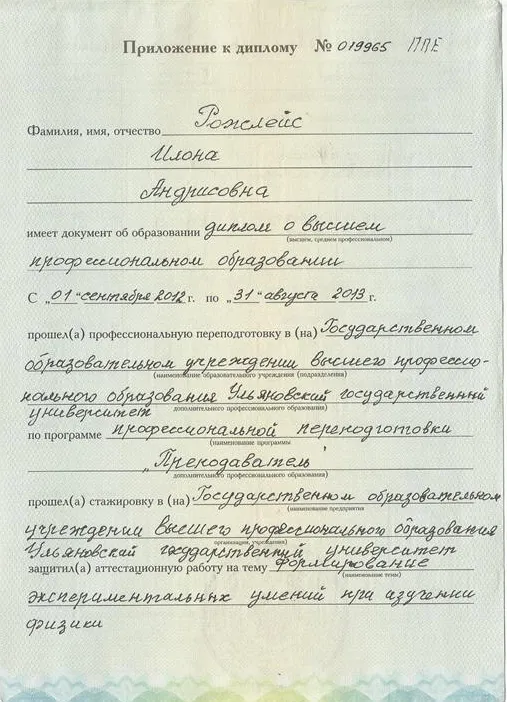 Приложение к диплому № 019965 ППЕ
Фамилия, имя, отчество Рожлейс
Илона
Андрисовна
имеет документ об образовании диплом о высшем
(высшем, среднем профессиональном)
профессиональном образовании
С „01“ сентября 2012 г. по „31“ августа 2013 г.
прошел(а) профессиональную переподготовку в (на) Государственном
образовательном учреждении высшего профессио-
(наименование образовательного учреждения (подразделения)
нального образования Ульяновский государственный
университет
дополнительного профессионального образования)
по программе профессиональной переподготовки
(наименование программы
„Преподаватель"
дополнительного профессионального образования)
прошел(а) стажировку в (на) Государственном образовательном
(наименование предприятия
учреждении Высшего профессионального образования
организации, учреждения)
Ульяновский государственный университет
защитил(а) аттестационную работу на тему Формирование
(наименование темы)
экспериментальных умений при изучении
физики